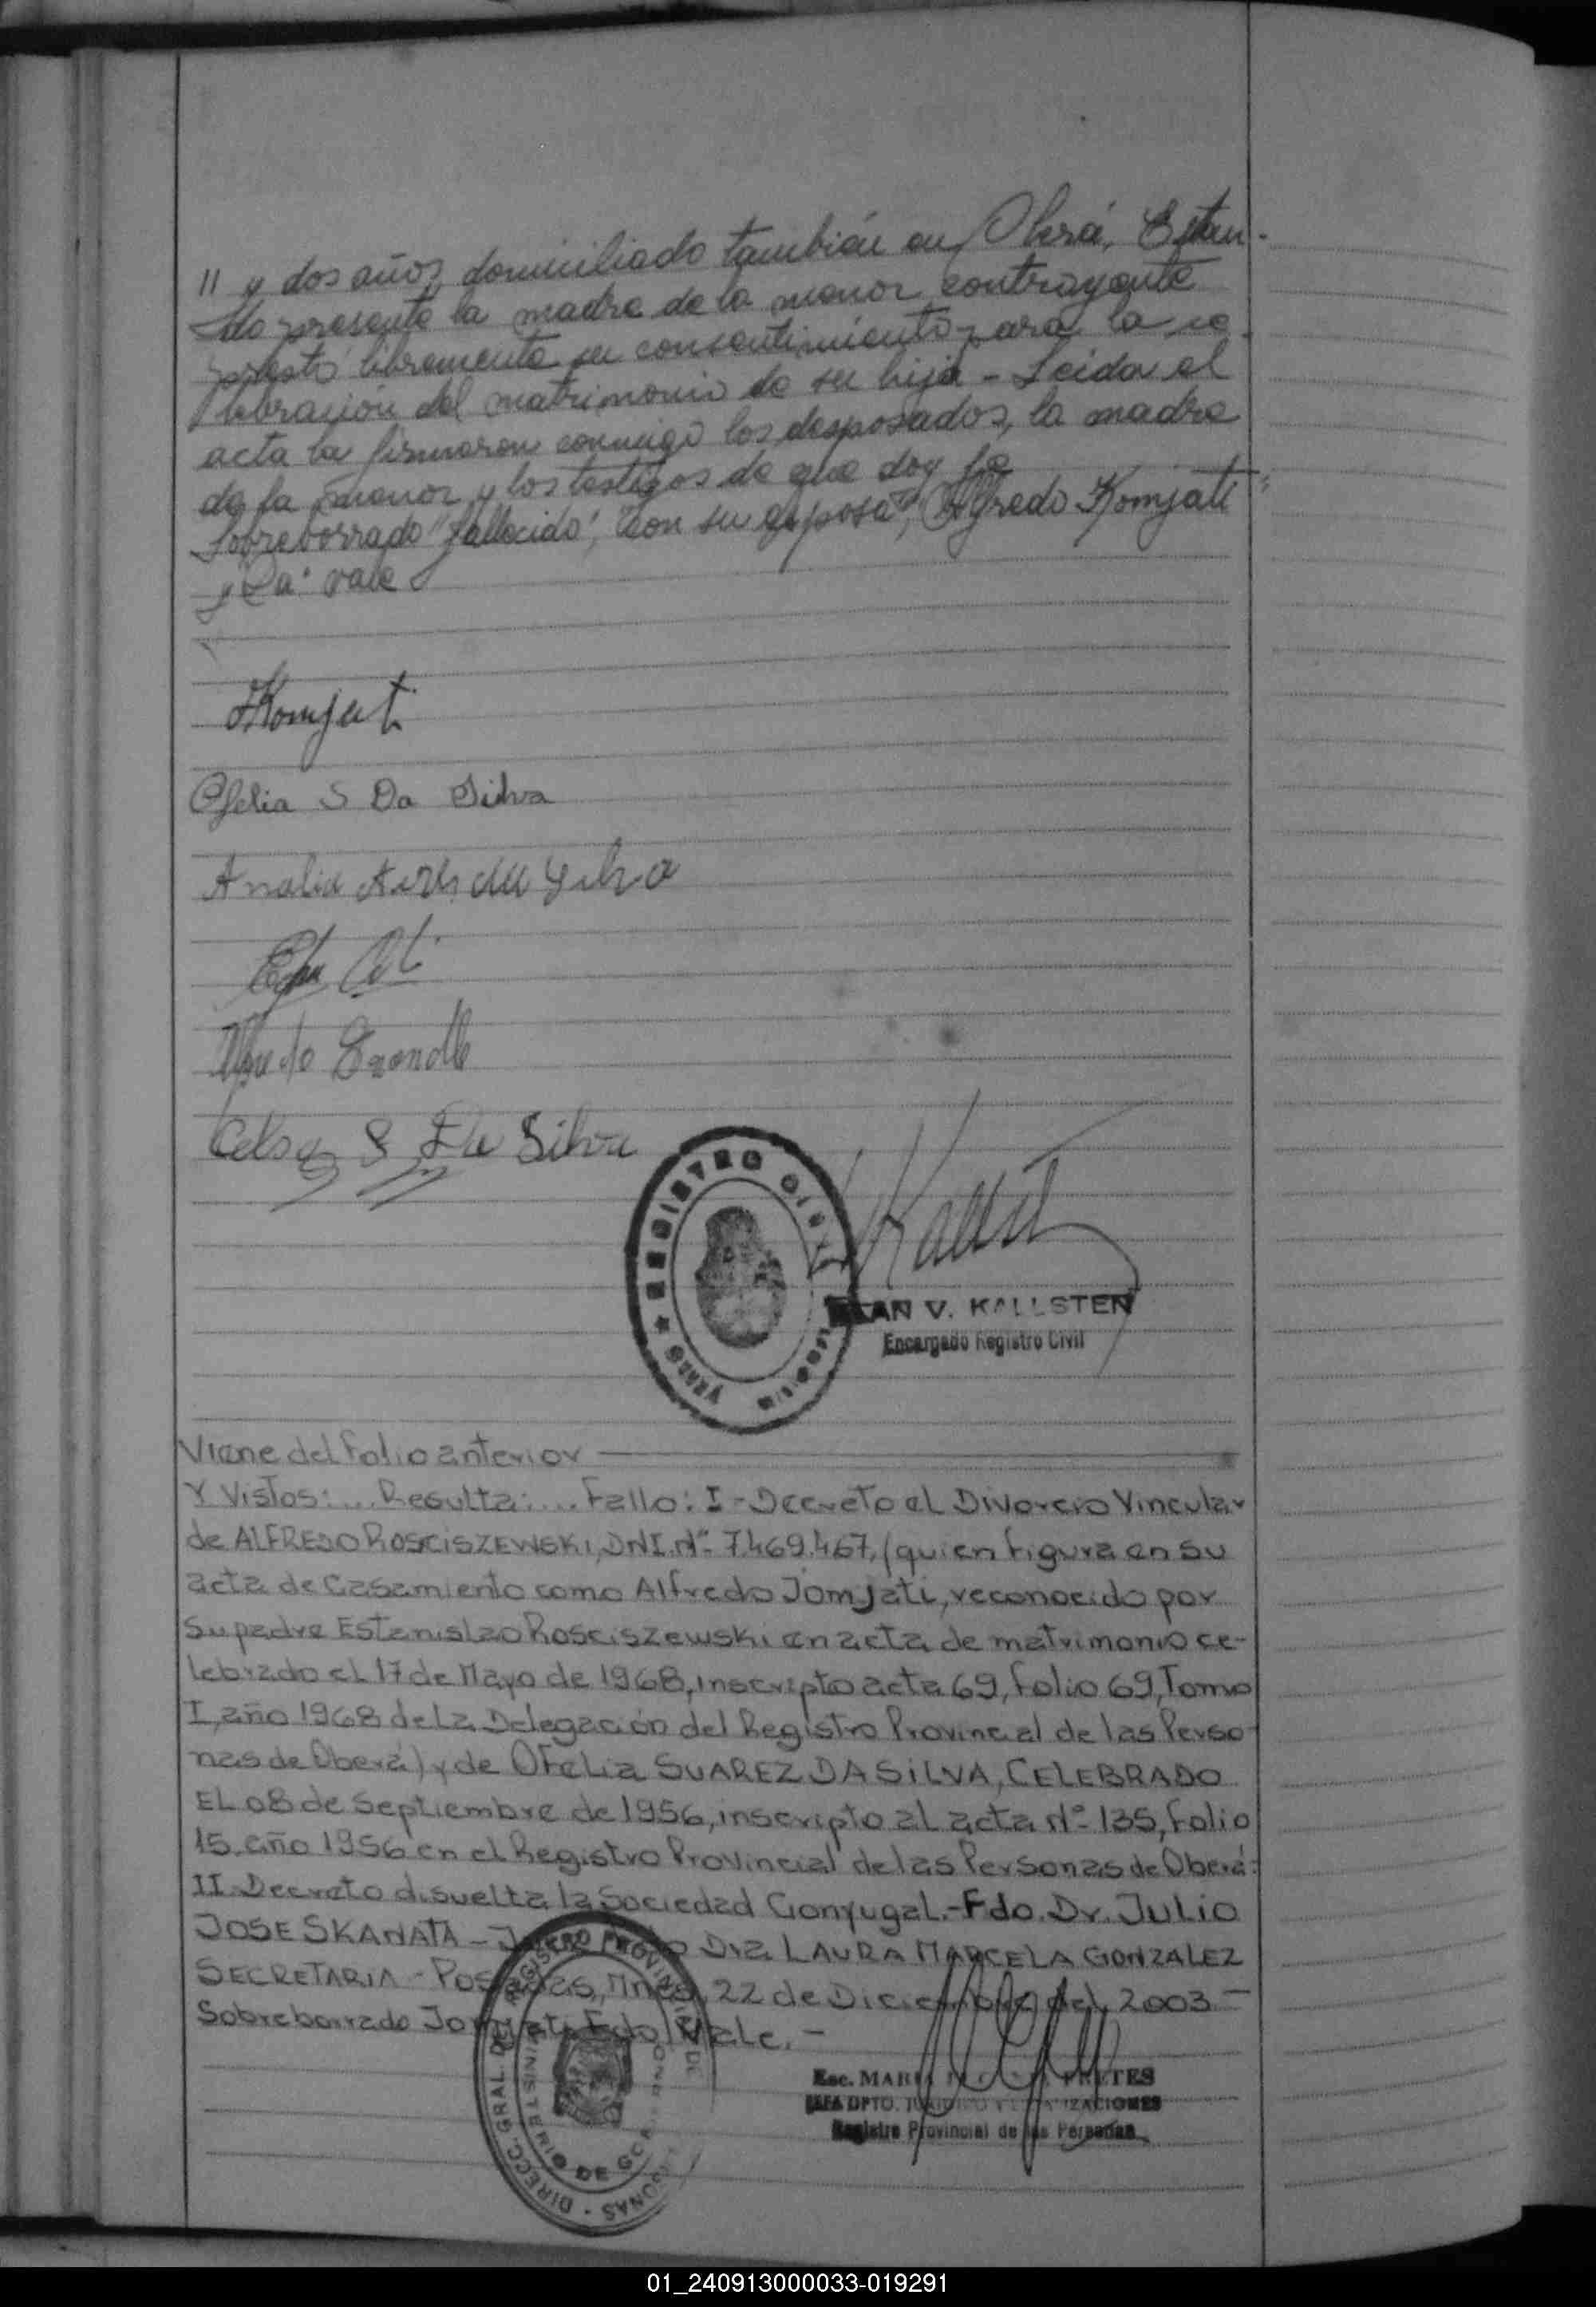 " y dos años, domiciliado también en Oberá, Estan-
do presente la madre de la menor contrayente
prestó libremente su consentimiento para la ce-
lebración del matrimonio de su hija - Leida el
acta la firmaron conmigo los desposados, la madre
de la menor y los testigos de que doy fe
Sobreborrado "fallecido", "con su esposa", Alfredo Komjati
y vale
Komjati
Ofelia S Da Silva
Analia da Silva
Celso S Da Silva
REGISTRO
V. KALLSTEN
Encargado Registro Civil
Viene del folio anterior
Y Vistos: ... Resulta: ... Fallo: I - Decreto el Divorcio Vincular
de ALFREDO ROSCISZEWSKI, DNI. Nº 7.469.467, (quien figura en su
acta de Casamiento como Alfredo Jomjati, reconocido por
su padre Estanislao Rosciszewski en acta de matrimonio ce-
lebrado el 17 de Mayo de 1968, inscripto acta 69, folio 69, Tomo
I, año 1968 de la Delegación del Registro Provincial de las Perso-
nas de Oberá) y de Ofelia SUAREZ DA SILVA, CELEBRADO
EL 08 de Septiembre de 1956, inscripto al acta Nº 135, folio
15 año 1956 en el Registro Provincial de las Personas de Oberá:
II. Decreto disuelta la Sociedad Conyugal.- Fdo. Dr. JULIO
JOSE SKANATA - Dra LAURA MARCELA GONZALEZ
SECRETARIA - Posadas, Mnes, 22 de Diciembre del 2003 -
Sobreborrado Jomjati Fdo Vale. -
Esc. MARIA
DPTO.
Registro Provincial de las Personas
DIRECC. GRAL. DEL REGISTRO PROVINCIAL DE
MINISTERIO DE
01_240913000033-019291